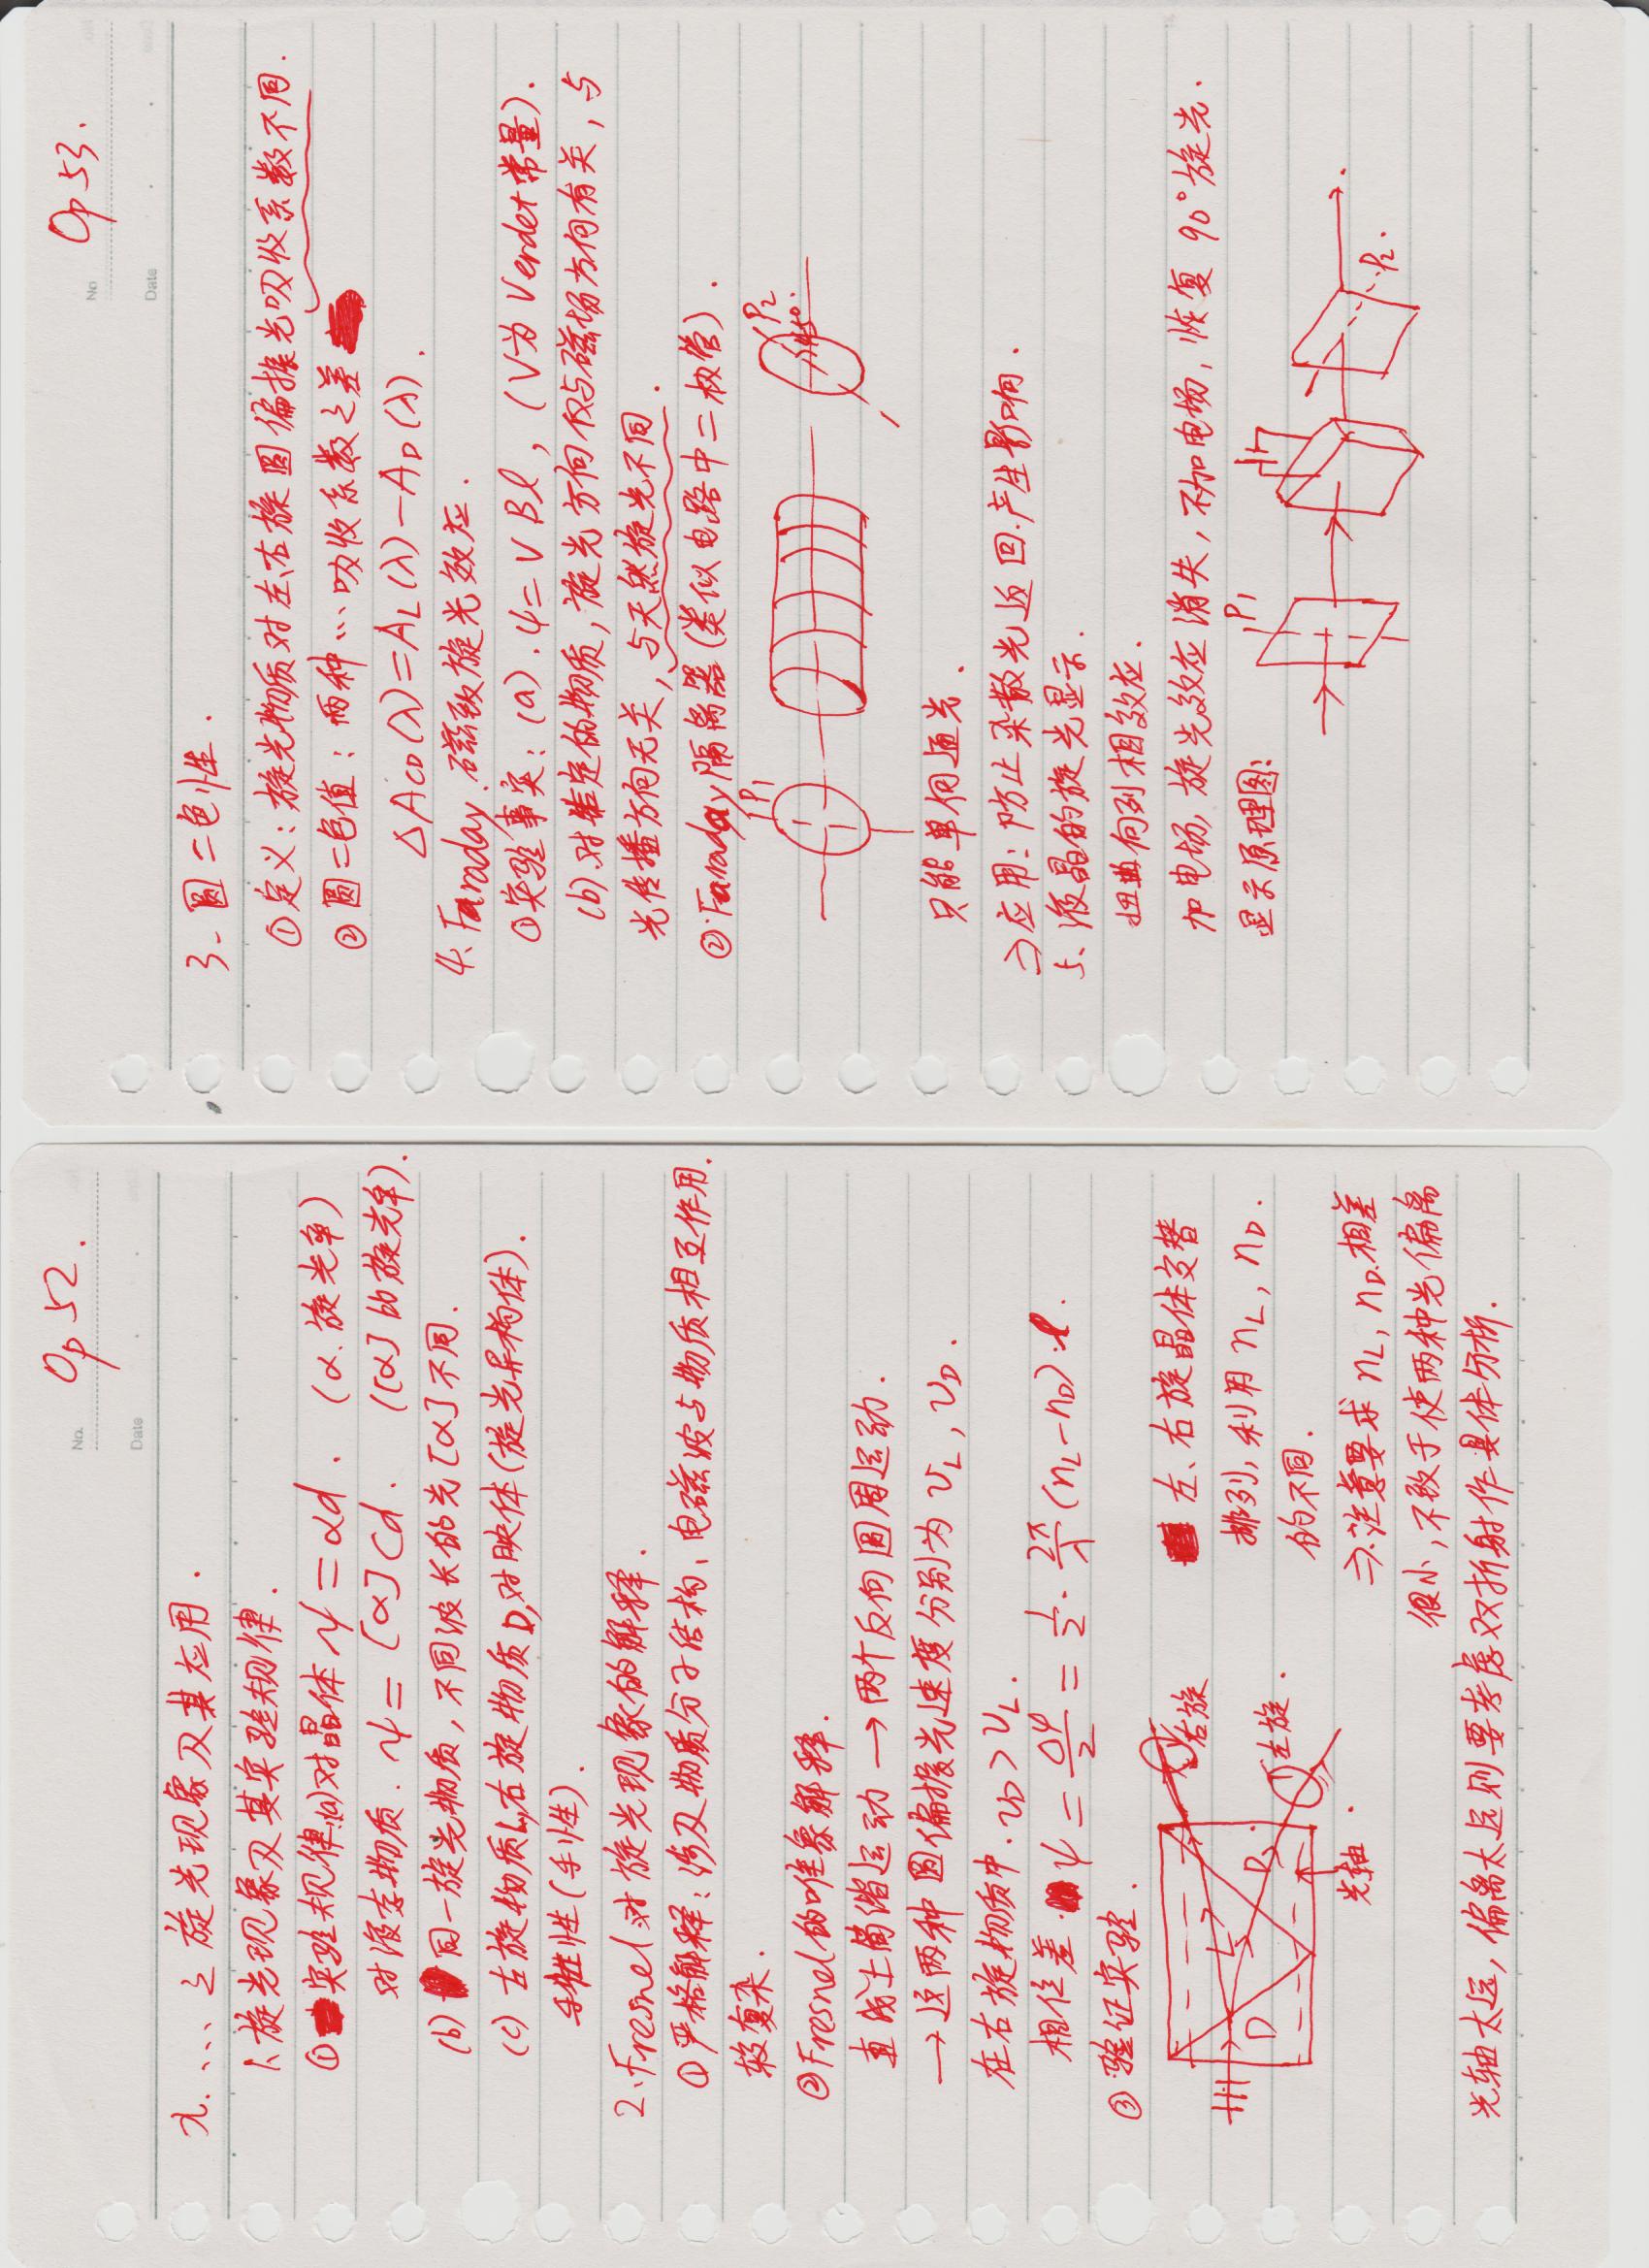 No. Op 52.
Date
九. ... 之旋光现象及其应用.
1、旋光现象及其实验规律.
① 实验规律:(a)对晶体 ψ = αd. (α.旋光率)
对液态物质. ψ = [α]Cd. ([α] 比旋光率).
(b) 同一旋光物质, 不同波长的光[α]不同.
(c) 左旋物质L,右旋物质D,对映体(旋光异构体).
手性(手性).
2、Fresnel对旋光现象的解释.
① 严格解释: 涉及物质分子结构、电磁波与物质相互作用.
较复杂.
②Fresnel的唯象解释.
直线上简谐运动 → 两个反向圆周运动.
→ 这两种圆偏振光速度分别为 v_L, v_D.
在右旋物质中. v_D > v_L.
相位差. ψ = Δφ/2 = 1/2 · 2π/λ (n_L-n_D)·l.
③ 验证实验.
右旋
L
D
D
左旋.
光轴.
左、右旋晶体交替
排列, 利用 n_L, n_D.
的不同.
⇒ 注意要求 n_L, n_D.相差
很小, 不致于使两种光偏离
光轴太远, 偏离太远则要考虑双折射作具体分析.
No Op 53.
Date
3- 圆二色性.
①定义: 旋光物质对左、右旋圆偏振光吸收系数不同.
② 圆二色值: 两种...吸收系数之差
ΔA_CD(λ)=A_L(λ)-A_D(λ).
4、Faraday 磁致旋光效应.
①实验事实: (a). ψ= VBl, (V为Verdet常量).
(b).对给定的物质, 旋光方向仅与磁场方向有关, 与
光传播方向无关, 与天然旋光不同.
②.Faraday隔离器(类似电路中二极管).
P₁
P₂
45°.
只能单向通光.
⇒应用: 防止杂散光返回.产生影响.
5、液晶的旋光显示.
扭曲向列相效应.
加电场, 旋光效应消失, 不加电场, 恢复 90°旋光.
显示原理图:
P₁
P₂.